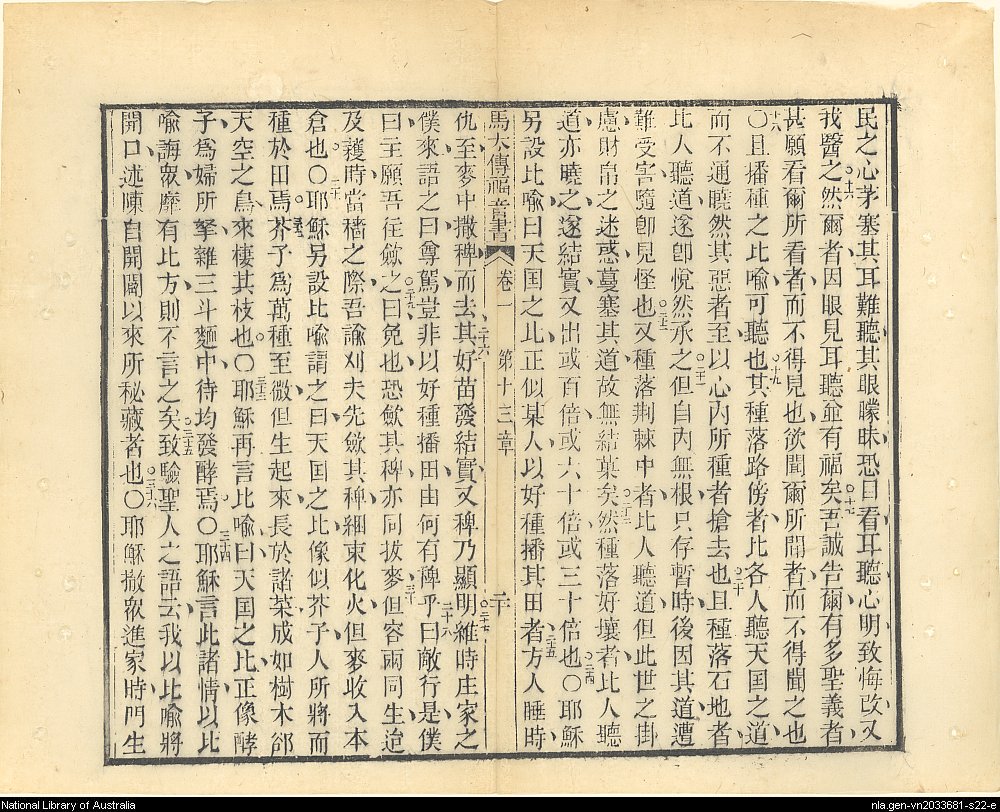 民之心茅塞其耳難聽其眼矇昧恐目看耳聽心明致悔改又
我醫之然爾者因眼見耳聽並有福矣吾誠告爾有多聖義者
甚願看爾所看者而不得見也欲聞爾所聞者而不得聞之也
〇且播種之比喻可聽也其種落路傍者比各人聽天国之道
而不通曉然其惡者至以心內所種者搶去也且種落石地者
比人聽道遂即悅然承之但自內無根只存暫時後因其道遭
難受害隨即見怪也又種落荆棘中者比人聽道但此世之掛
慮財帛之迷惑蔓塞其道故無結菓矣然種落好壤者比人聽
道亦曉之遂結實又出或百倍或六十倍或三十倍也〇耶穌
另設比喻曰天国之比正似某人以好種播其田者方人睡時
馬太傳福音書 卷一 第十三章 二十
仇至麥中撒稗而去其好苗發結實又稗乃顯明維時庄家之
僕來語之曰尊駕豈非以好種播田由何有稗乎曰敵行是僕
曰主願吾往斂之曰免也恐斂其稗亦同拔麥但容兩同生迨
及穫時當穡之際吾諭刈夫先斂其稗綑束化火但麥收入本
倉也〇耶穌另設比喻謂之曰天国之比像似芥子人所將而
種於田焉芥子為萬種至微但生起來長於諸菜成如樹木郤
天空之鳥來棲其枝也〇耶穌再言比喻曰天国之比正像酵
子為婦所拏雜三斗麵中待均發酵焉〇耶穌言此諸情以比
喻誨眾靡有比方則不言之矣致驗聖人之語云我以比喻將
開口述陳自開闢以來所秘藏者也〇耶穌撤眾進家時門生
十六
十七
十八
十九
二十
二十一
二十二
二十三
二十四
二十五
二十六
二十七
二十八
二十九
三十
三十三
三十四
三十五
三十六
National Library of Australia
nla.gen-vn2033681-s22-e